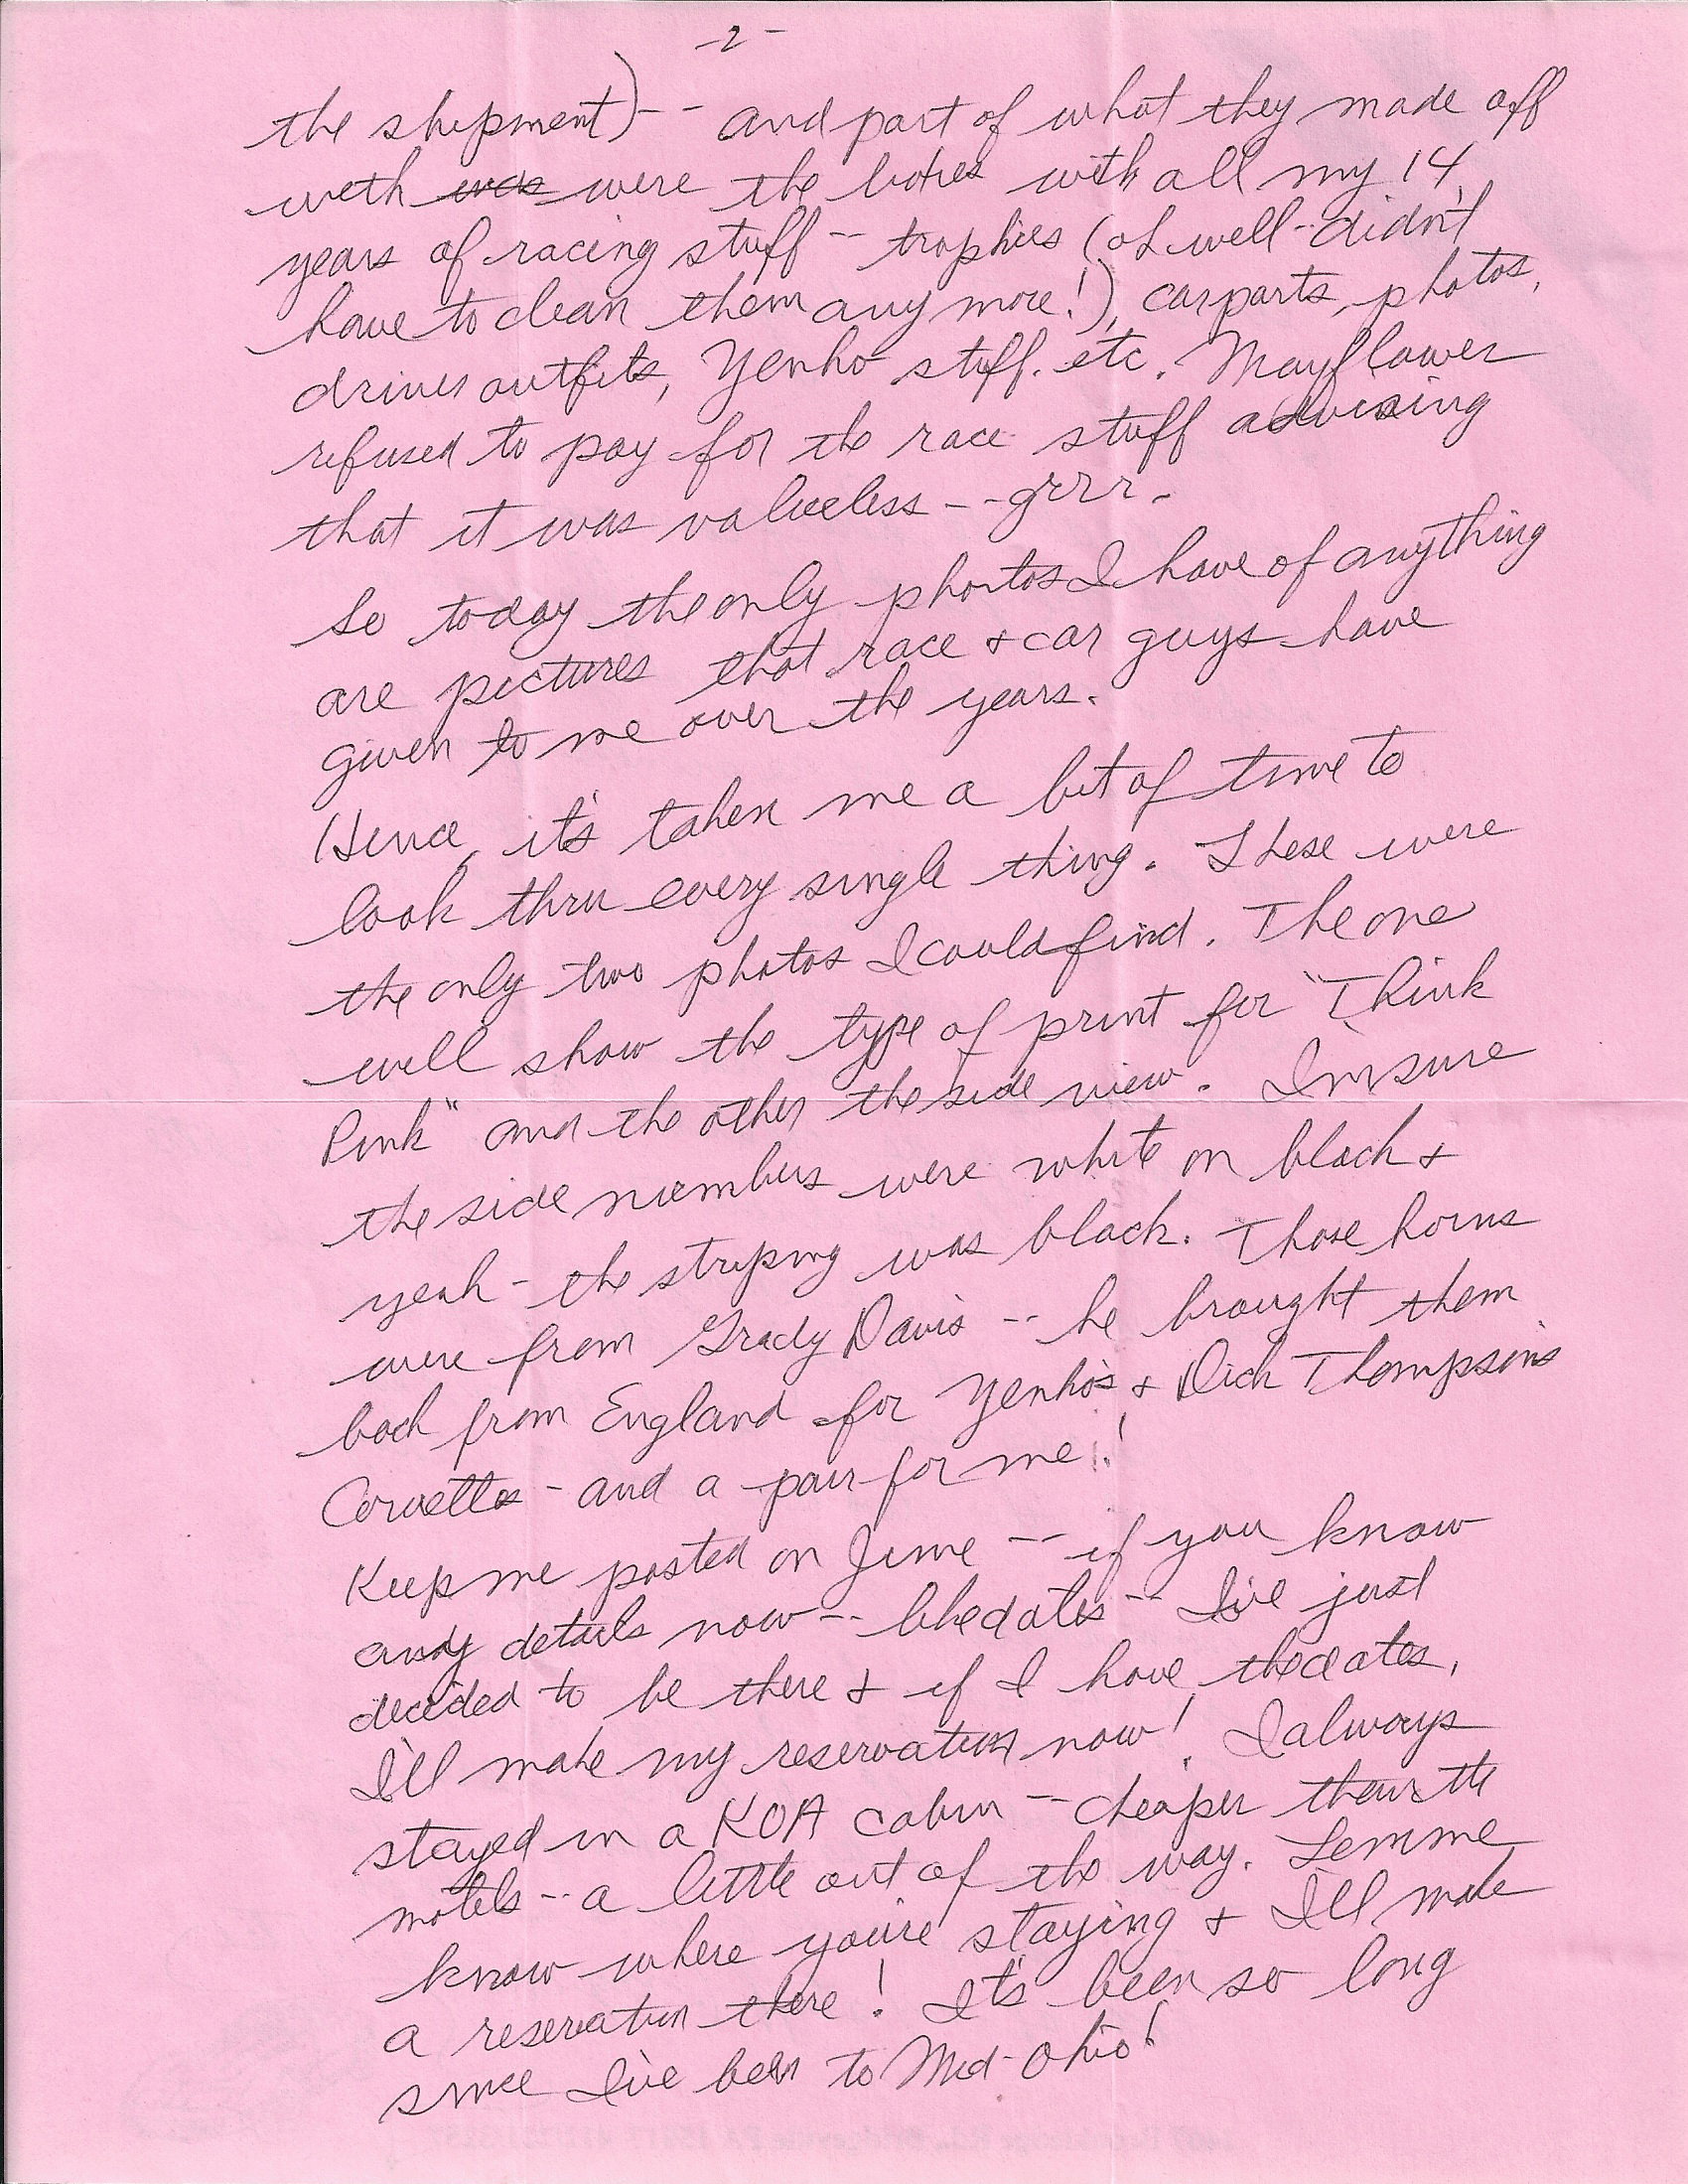 -2-
the shipment)-- and part of what they made off
with was were the boxes with all my 14
years of racing stuff -- trophies (oh well -- didn't
have to clean them any more!), car parts, photos,
drivers outfits, Yenko stuff. etc. Mayflower
refused to pay for the race stuff advising
that it was valueless -- grrr.
So today the only photos I have of anything
are pictures that race & car guys have
given to me over the years.
Hence, it's taken me a bit of time to
look thru every single thing. These were
the only two photos I could find. The one
will show the type of print for "Think
Pink" and the other the side view. I'm sure
the side numbers were white on black &
yeah - the striping was black. Those horns
were from Grady Davis -- he brought them
back from England for Yenko's & Dick Thompson's
Corvettes - and a pair for me!
Keep me posted on June -- if you know
any details now -- like dates -- I've just
decided to be there & if I have the dates,
I'll make my reservation now! I always
stayed in a KOA cabin -- cheaper than the
motels -- a little out of the way. Lemme
know where you're staying & I'll make
a reservation there! It's been so long
since I've been to Mid-Ohio!